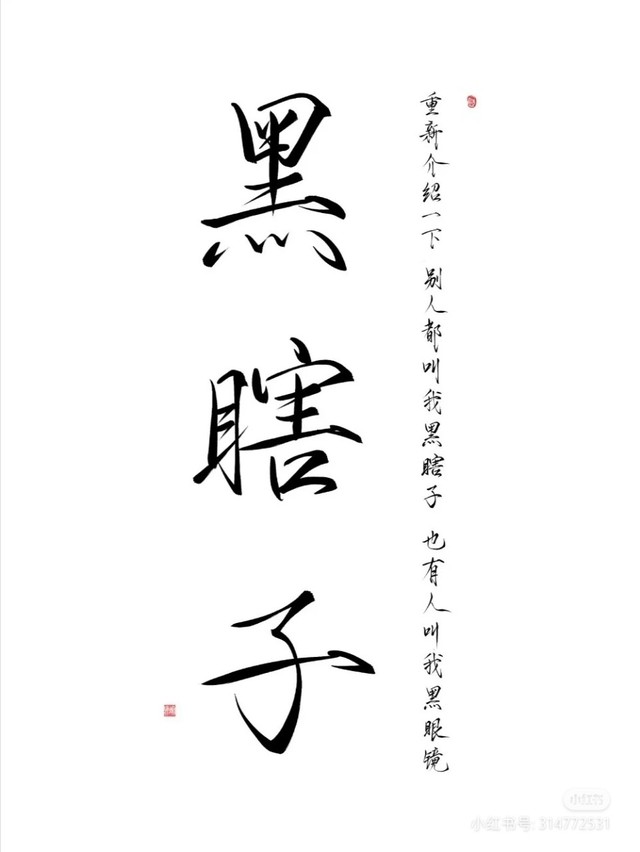 重新介绍一下 别人都叫我黑瞎子 也有人叫我黑眼镜
黑瞎子
小红书
小红书号: 314772531